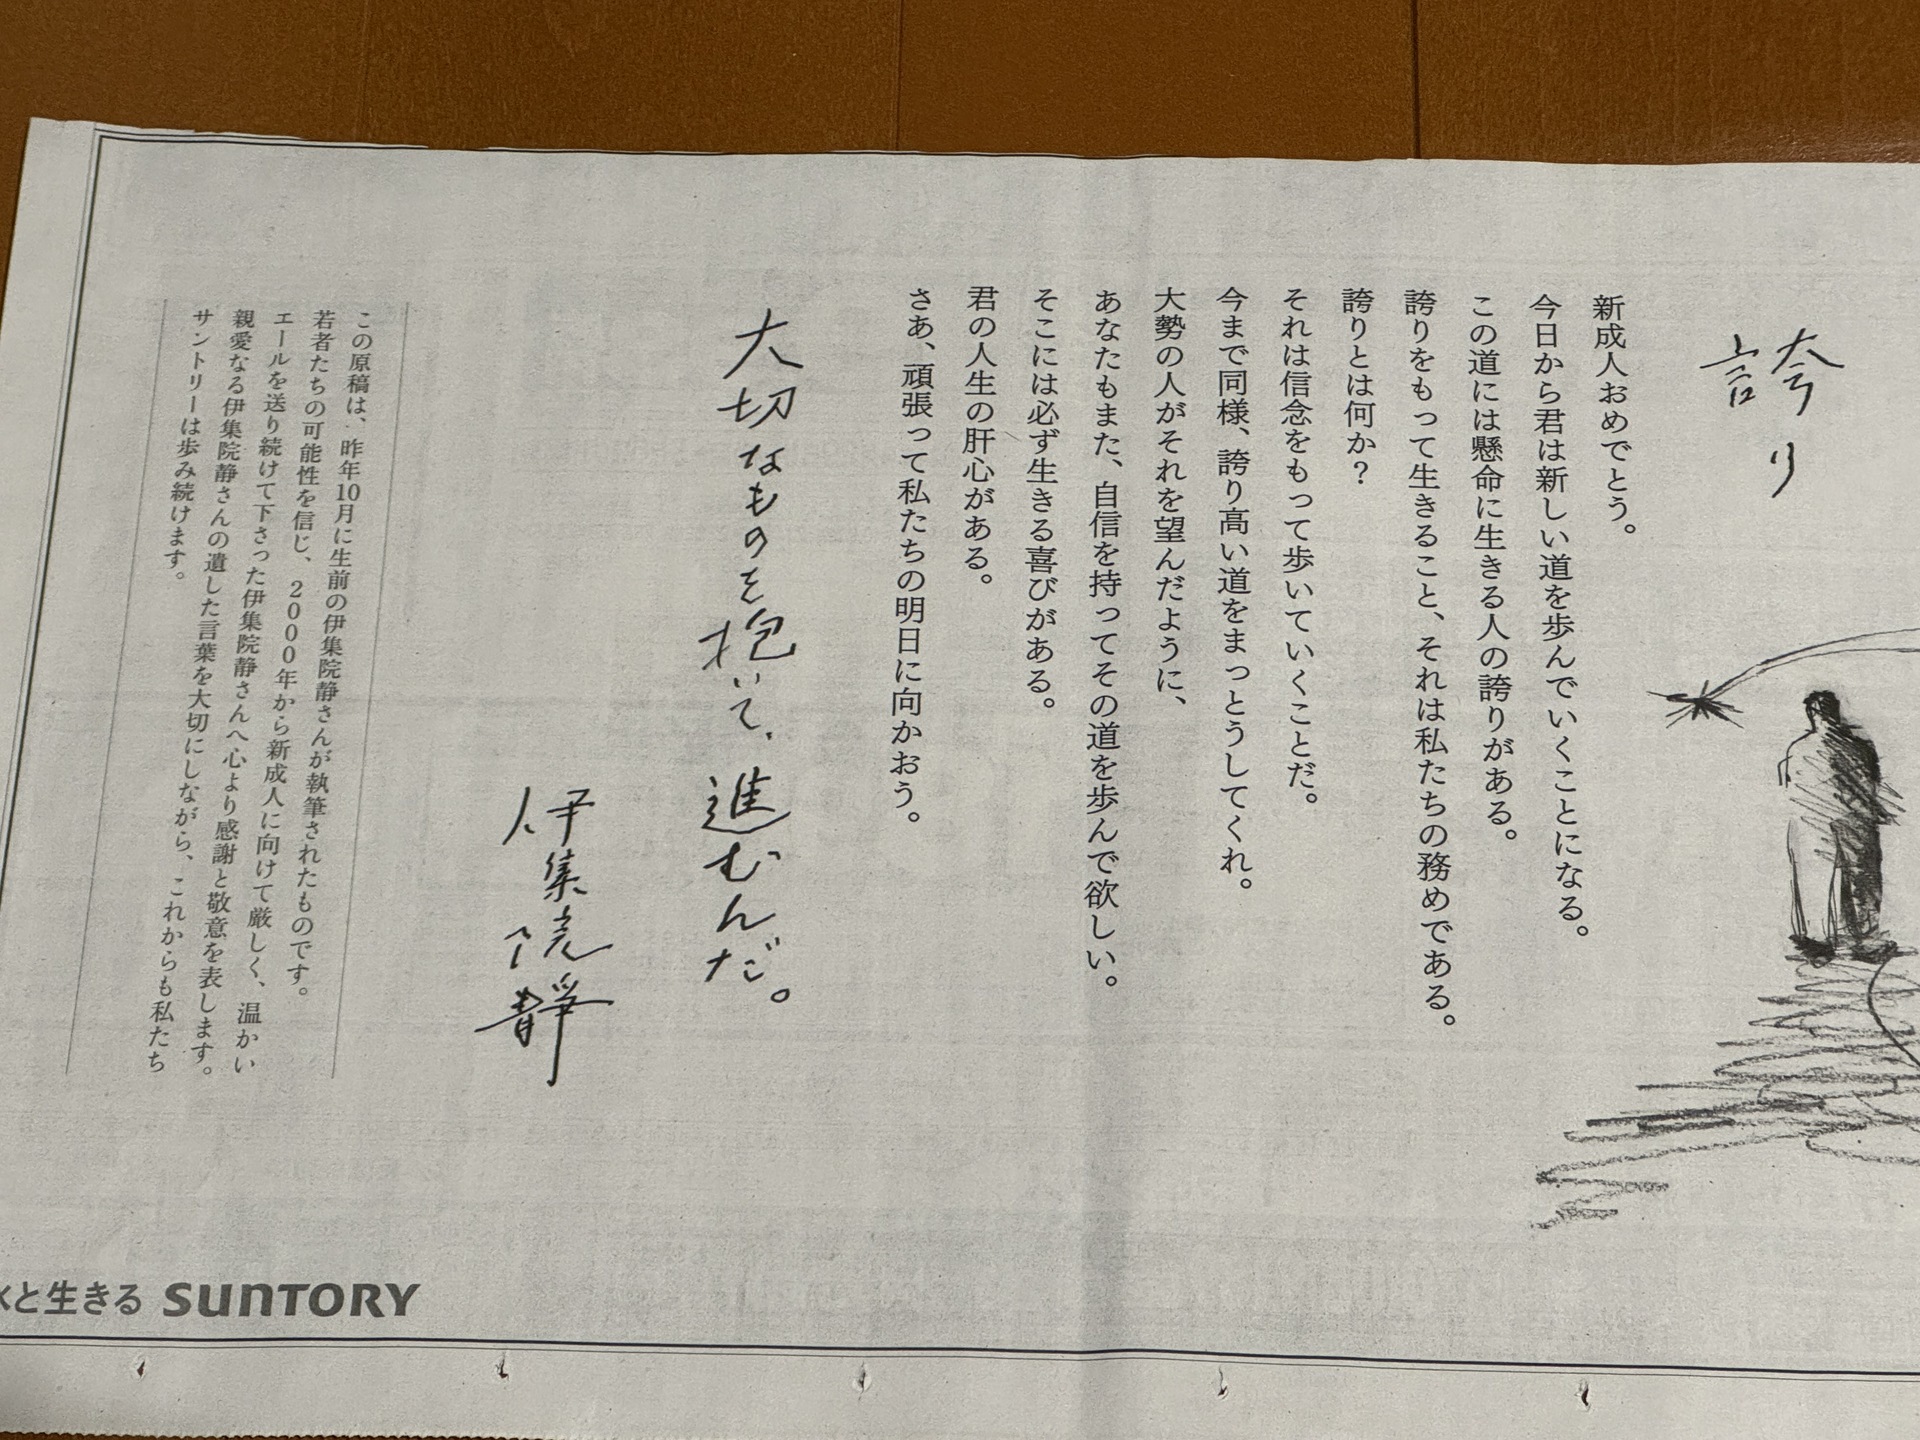 誇り
新成人おめでとう。
今日から君は新しい道を歩んでいくことになる。
この道には懸命に生きる人の誇りがある。
誇りをもって生きること、それは私たちの務めである。
誇りとは何か？
それは信念をもって歩いていくことだ。
今まで同様、誇り高い道をまっとうしてくれ。
大勢の人がそれを望んだように、
あなたもまた、自信を持ってその道を歩んで欲しい。
そこには必ず生きる喜びがある。
君の人生の肝心がある。
さあ、頑張って私たちの明日に向かおう。
大切なものを抱いて、進むんだ。
伊集院静
この原稿は、昨年10月に生前の伊集院静さんが執筆されたものです。
若者たちの可能性を信じ、2000年から新成人に向けて厳しく、温かい
エールを送り続けて下さった伊集院静さんへ心より感謝と敬意を表します。
親愛なる伊集院静さんの遺した言葉を大切にしながら、これからも私たち
サントリーは歩み続けます。
と生きる SUNTORY